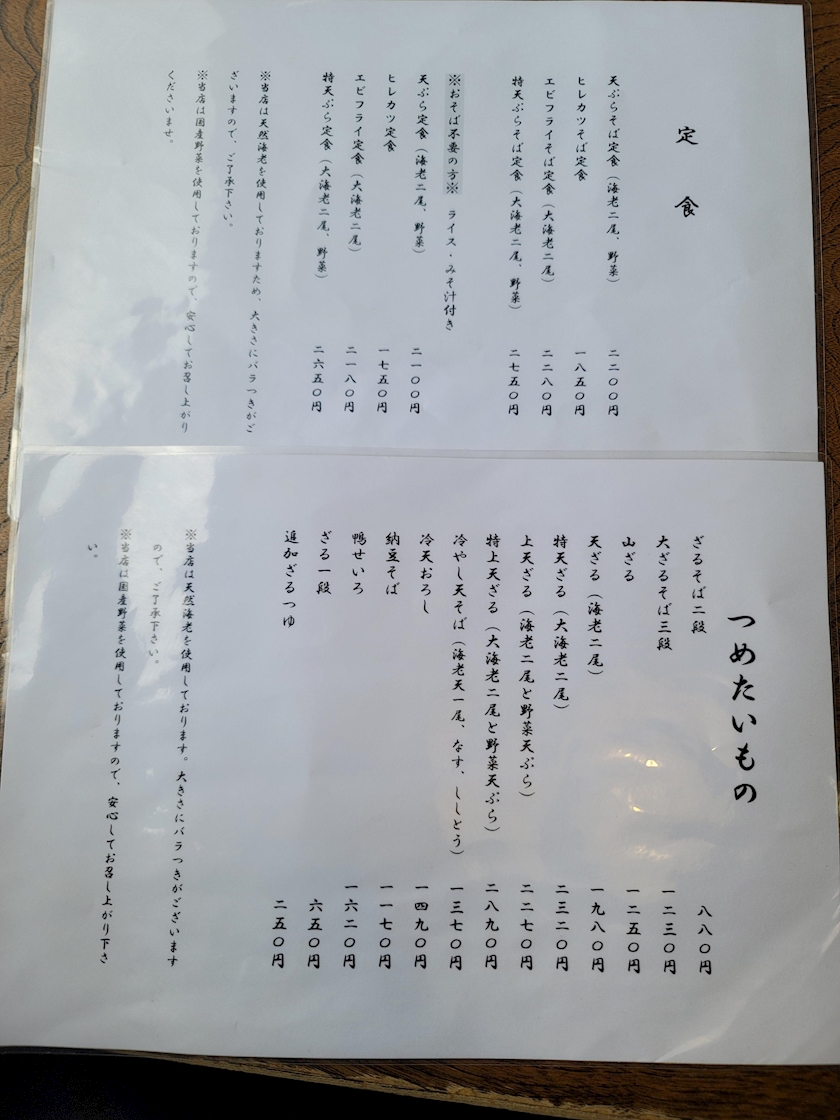 定食
天ぷらそば定食（海老二尾、野菜） 二二〇〇円
ヒレカツそば定食 一八五〇円
エビフライそば定食（大海老二尾） 二二八〇円
特天ぷらそば定食（大海老二尾、野菜） 二七五〇円
※おそば不要の方※ ライス・みそ汁付き
天ぷら定食（海老二尾、野菜） 二一〇〇円
ヒレカツ定食 一七五〇円
エビフライ定食（大海老二尾） 二一八〇円
特天ぷら定食（大海老二尾、野菜） 二六五〇円
※当店は天然海老を使用しておりますため、大きさにバラつきがご
ざいますので、ご了承下さい。
※当店は国産野菜を使用しておりますので、安心してお召し上がり
くださいませ。
つめたいもの
ざるそば二段 八八〇円
大ざるそば三段 一二三〇円
山ざる 一二五〇円
天ざる（海老二尾） 一九八〇円
特天ざる（大海老二尾） 二三二〇円
上天ざる（海老二尾と野菜天ぷら） 二二七〇円
特上天ざる（大海老二尾と野菜天ぷら） 二八九〇円
冷やし天そば（海老天一尾、なす、ししとう） 一三七〇円
冷天おろし 一四九〇円
納豆そば 一一七〇円
鴨せいろ 一六二〇円
ざる一段 六五〇円
追加ざるつゆ 二五〇円
※当店は天然海老を使用しております。大きさにバラつきがございます
ので、ご了承下さい。
※当店は国産野菜を使用しておりますので、安心してお召し上がり下さ
い。